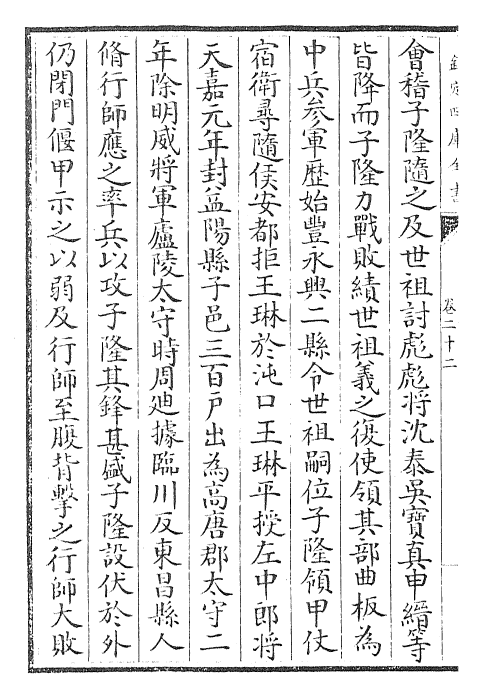 欽定四庫全書
卷二十二
會稽子隆隨之及世祖討彪彪將沈泰吳寶真申縉等
皆降而子隆力戰敗績世祖義之復使領其部曲板為
中兵參軍歴始豐永興二縣令世祖嗣位子隆領甲仗
宿衛尋隨侯安都拒王琳於沌口王琳平授左中郎將
天嘉元年封益陽縣子邑三百戸出為高唐郡太守二
年除明威將軍廬陵太守時周廸據臨川反東昌縣人
脩行師應之率兵以攻子隆其鋒甚盛子隆設伏於外
仍閉門偃甲示之以弱及行師至腹背擊之行師大敗